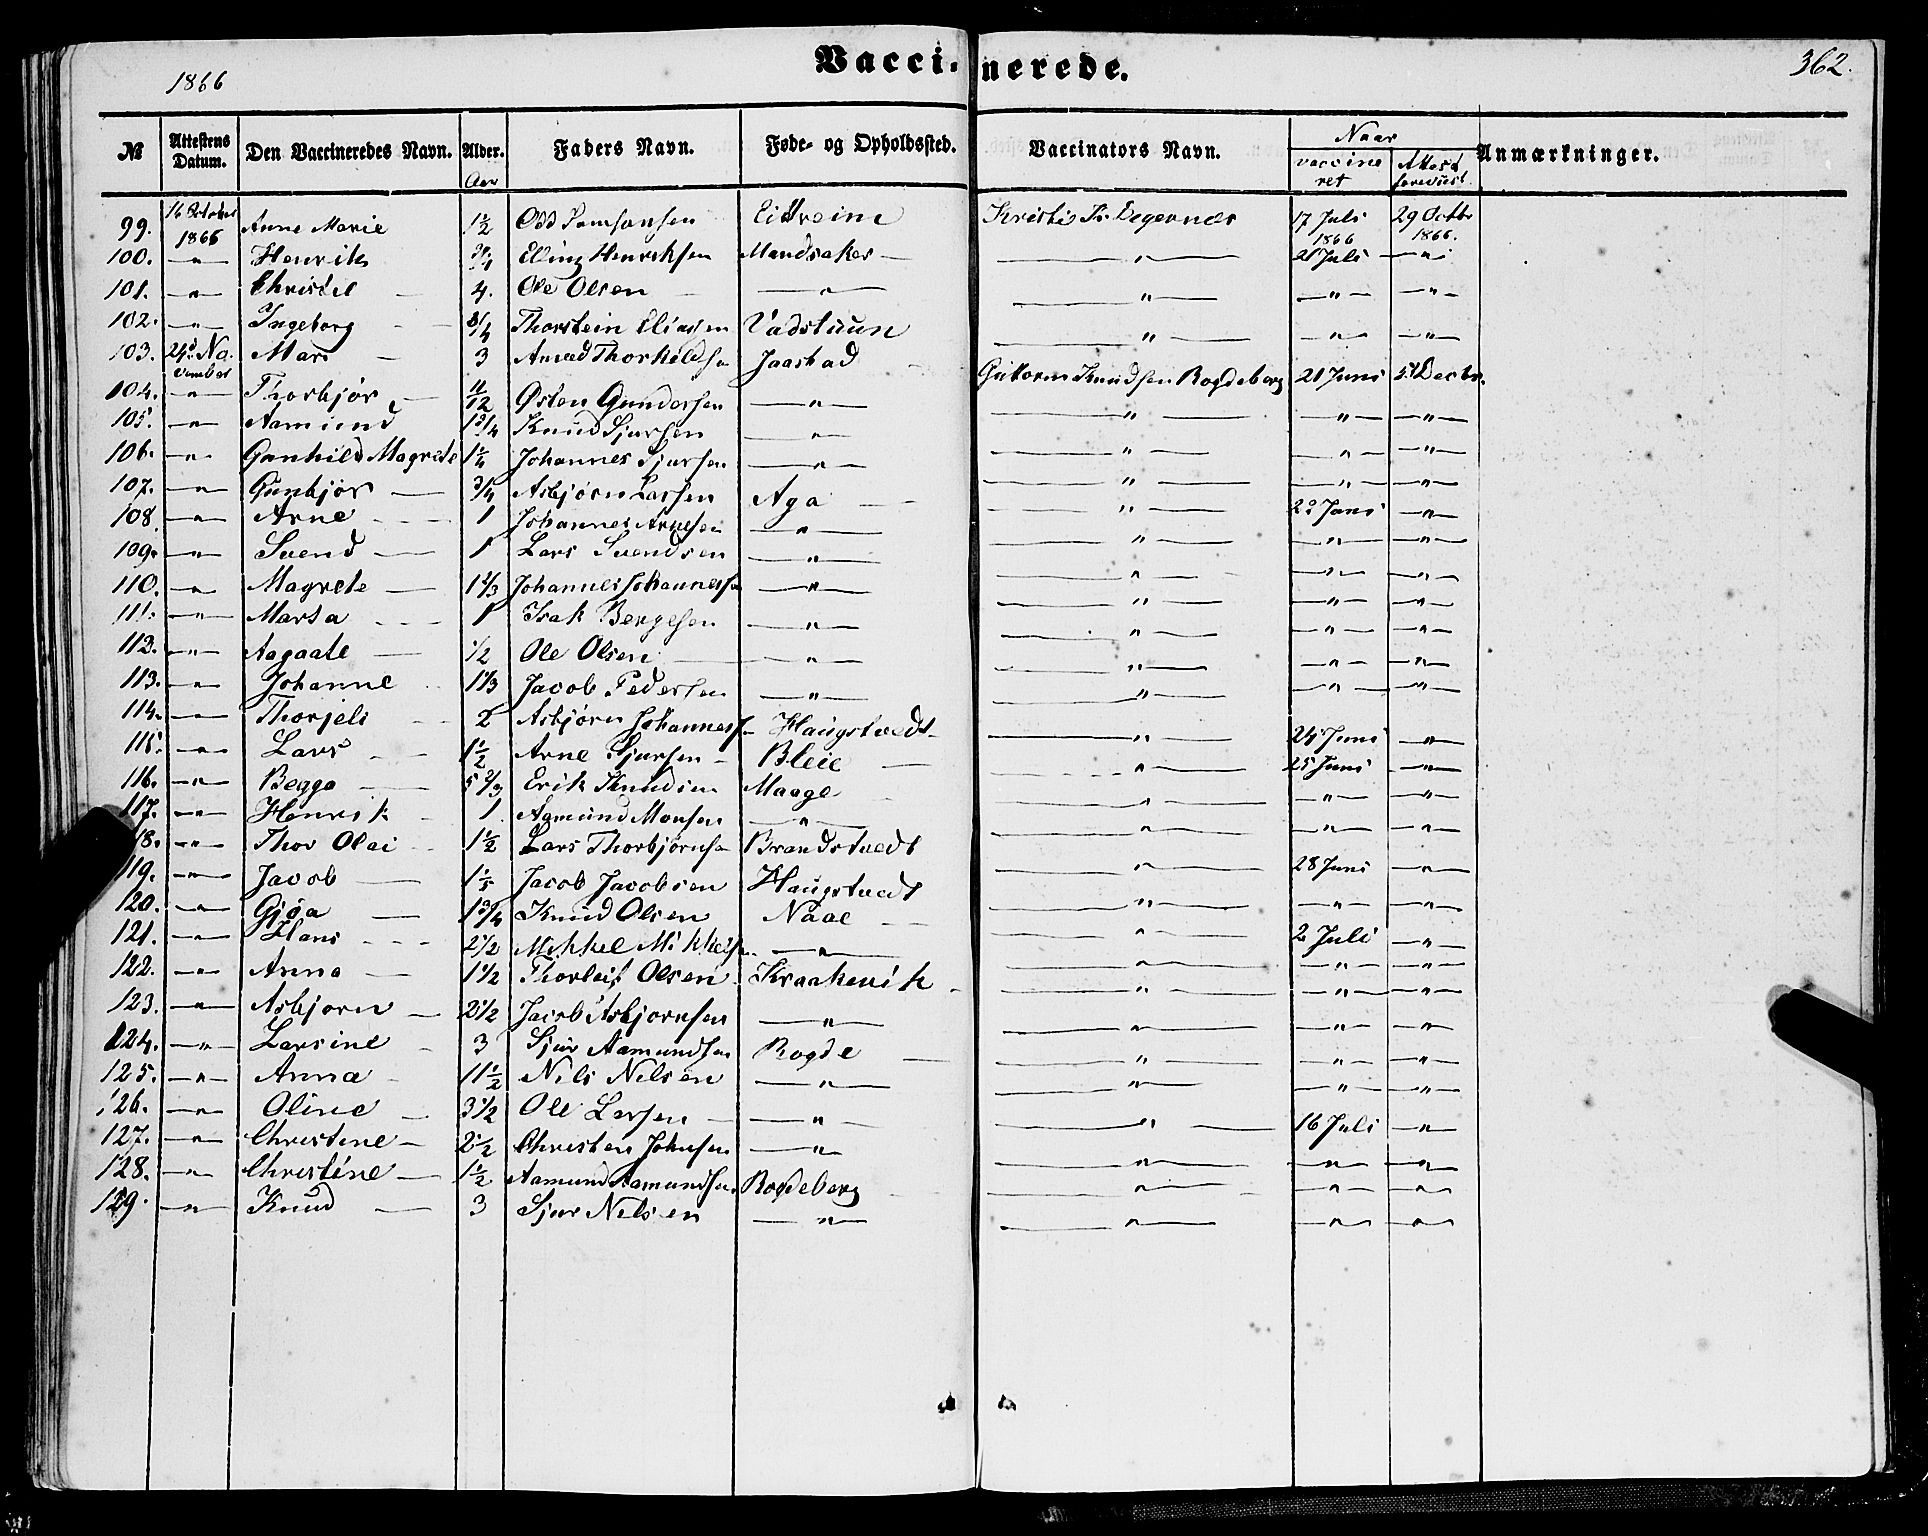 1866 Vaccinerede. 362.
№ Attestens Datum. Den Vaccineredes Navn. Alder. Faders Navn. Føde- og Opholdssted. Vaccinators Navn. Naar Anmærkninger.
Aar vaccineret Attest forevist
99. 16 October 1866 Anne Marie 1½ Odd Samsonsen Eitreim Kristie Degernes 17 Juli 1866 29 Octbr 1866.
100. —"— Henrik 3/4 Elling Henriksen Mandsaker —"— 21 Juli —"—
101. —"— Christel 4. Ole Olsen —"— —"— —"— —"—
102. —"— Ingeborg 3/4 Thorstein Eliassen Vadstuun —"— —"— —"—
103. 24d November Mari 3 Amund Thorkildsn Jaastad Guttorm Knudsen Rogdeberg 21 Juni 5d Decbr.
104. —"— Thorbjør 11/12 Østen Gundersen —"— —"— —"— —"—
105. —"— Aamund 1 3/4 Knud Sjursen —"— —"— —"— —"—
106. —"— Gunhild Magrete 1¼ Johannes Sjursen —"— —"— —"— —"—
107. —"— Gunbjør 3/4 Asbjørn Larsen Aga —"— 22 Juni —"—
108. —"— Arne 1 Johannes Arnesen —"— —"— —"— —"—
109. —"— Svend 1 Lars Svendsen —"— —"— —"— —"—
110. —"— Magrete 1 1/3 Johannes Johannessn —"— —"— —"— —"—
111. —"— Marta 1 Isak Bergesen —"— —"— —"— —"—
112. —"— Aagaate 1/2 Ole Olsen —"— —"— —"— —"—
113. —"— Johanne 1 1/3 Jacob Pedersen —"— —"— —"— —"—
114. —"— Thorjels 2 Asbjørn Johanness Haugstvedt —"— 24 Juni —"—
115. —"— Lars 1½ Arne Sjursen Bleie —"— 25 Juni —"—
116. —"— Begga 5 2/3 Erik Knudsen Maage —"— —"— —"—
117. —"— Henrik 1 Aamund Monsen —"— —"— —"— —"—
118. —"— Thor Olai 1½ Lars Thorbjørnsn Brandstvedt —"— 28 Juni —"—
119. —"— Jacob 1 1/5 Jacob Jacobsen Haugstvedt —"— —"— —"—
120. —"— Gjøa 1 3/4 Knud Olsen Naae —"— 2 Juli —"—
121. —"— Hans 2 1/2 Mikkel Mikkelsn —"— —"— —"— —"—
122. —"— Anna 1 1/2 Thorleif Olsen Kraakevik —"— —"— —"—
123. —"— Asbjørn 2 1/2 Jacob Asbjørnsen —"— —"— —"— —"—
124. —"— Larsine 3 Sjur Aamundsen Rogde —"— —"— —"—
125. —"— Anna 11½ Nils Nilsen —"— —"— —"— —"—
126. —"— Oline 3 1/2 Ole Larsen —"— —"— 16 Juli —"—
127. —"— Christine 2½ Christen Johnsen —"— —"— —"— —"—
128. —"— Christine 1½ Aamund Aamundsen Rogdeberg —"— —"— —"—
129. —"— Knud 3 Sjur Nilsen —"— —"— —"— —"—